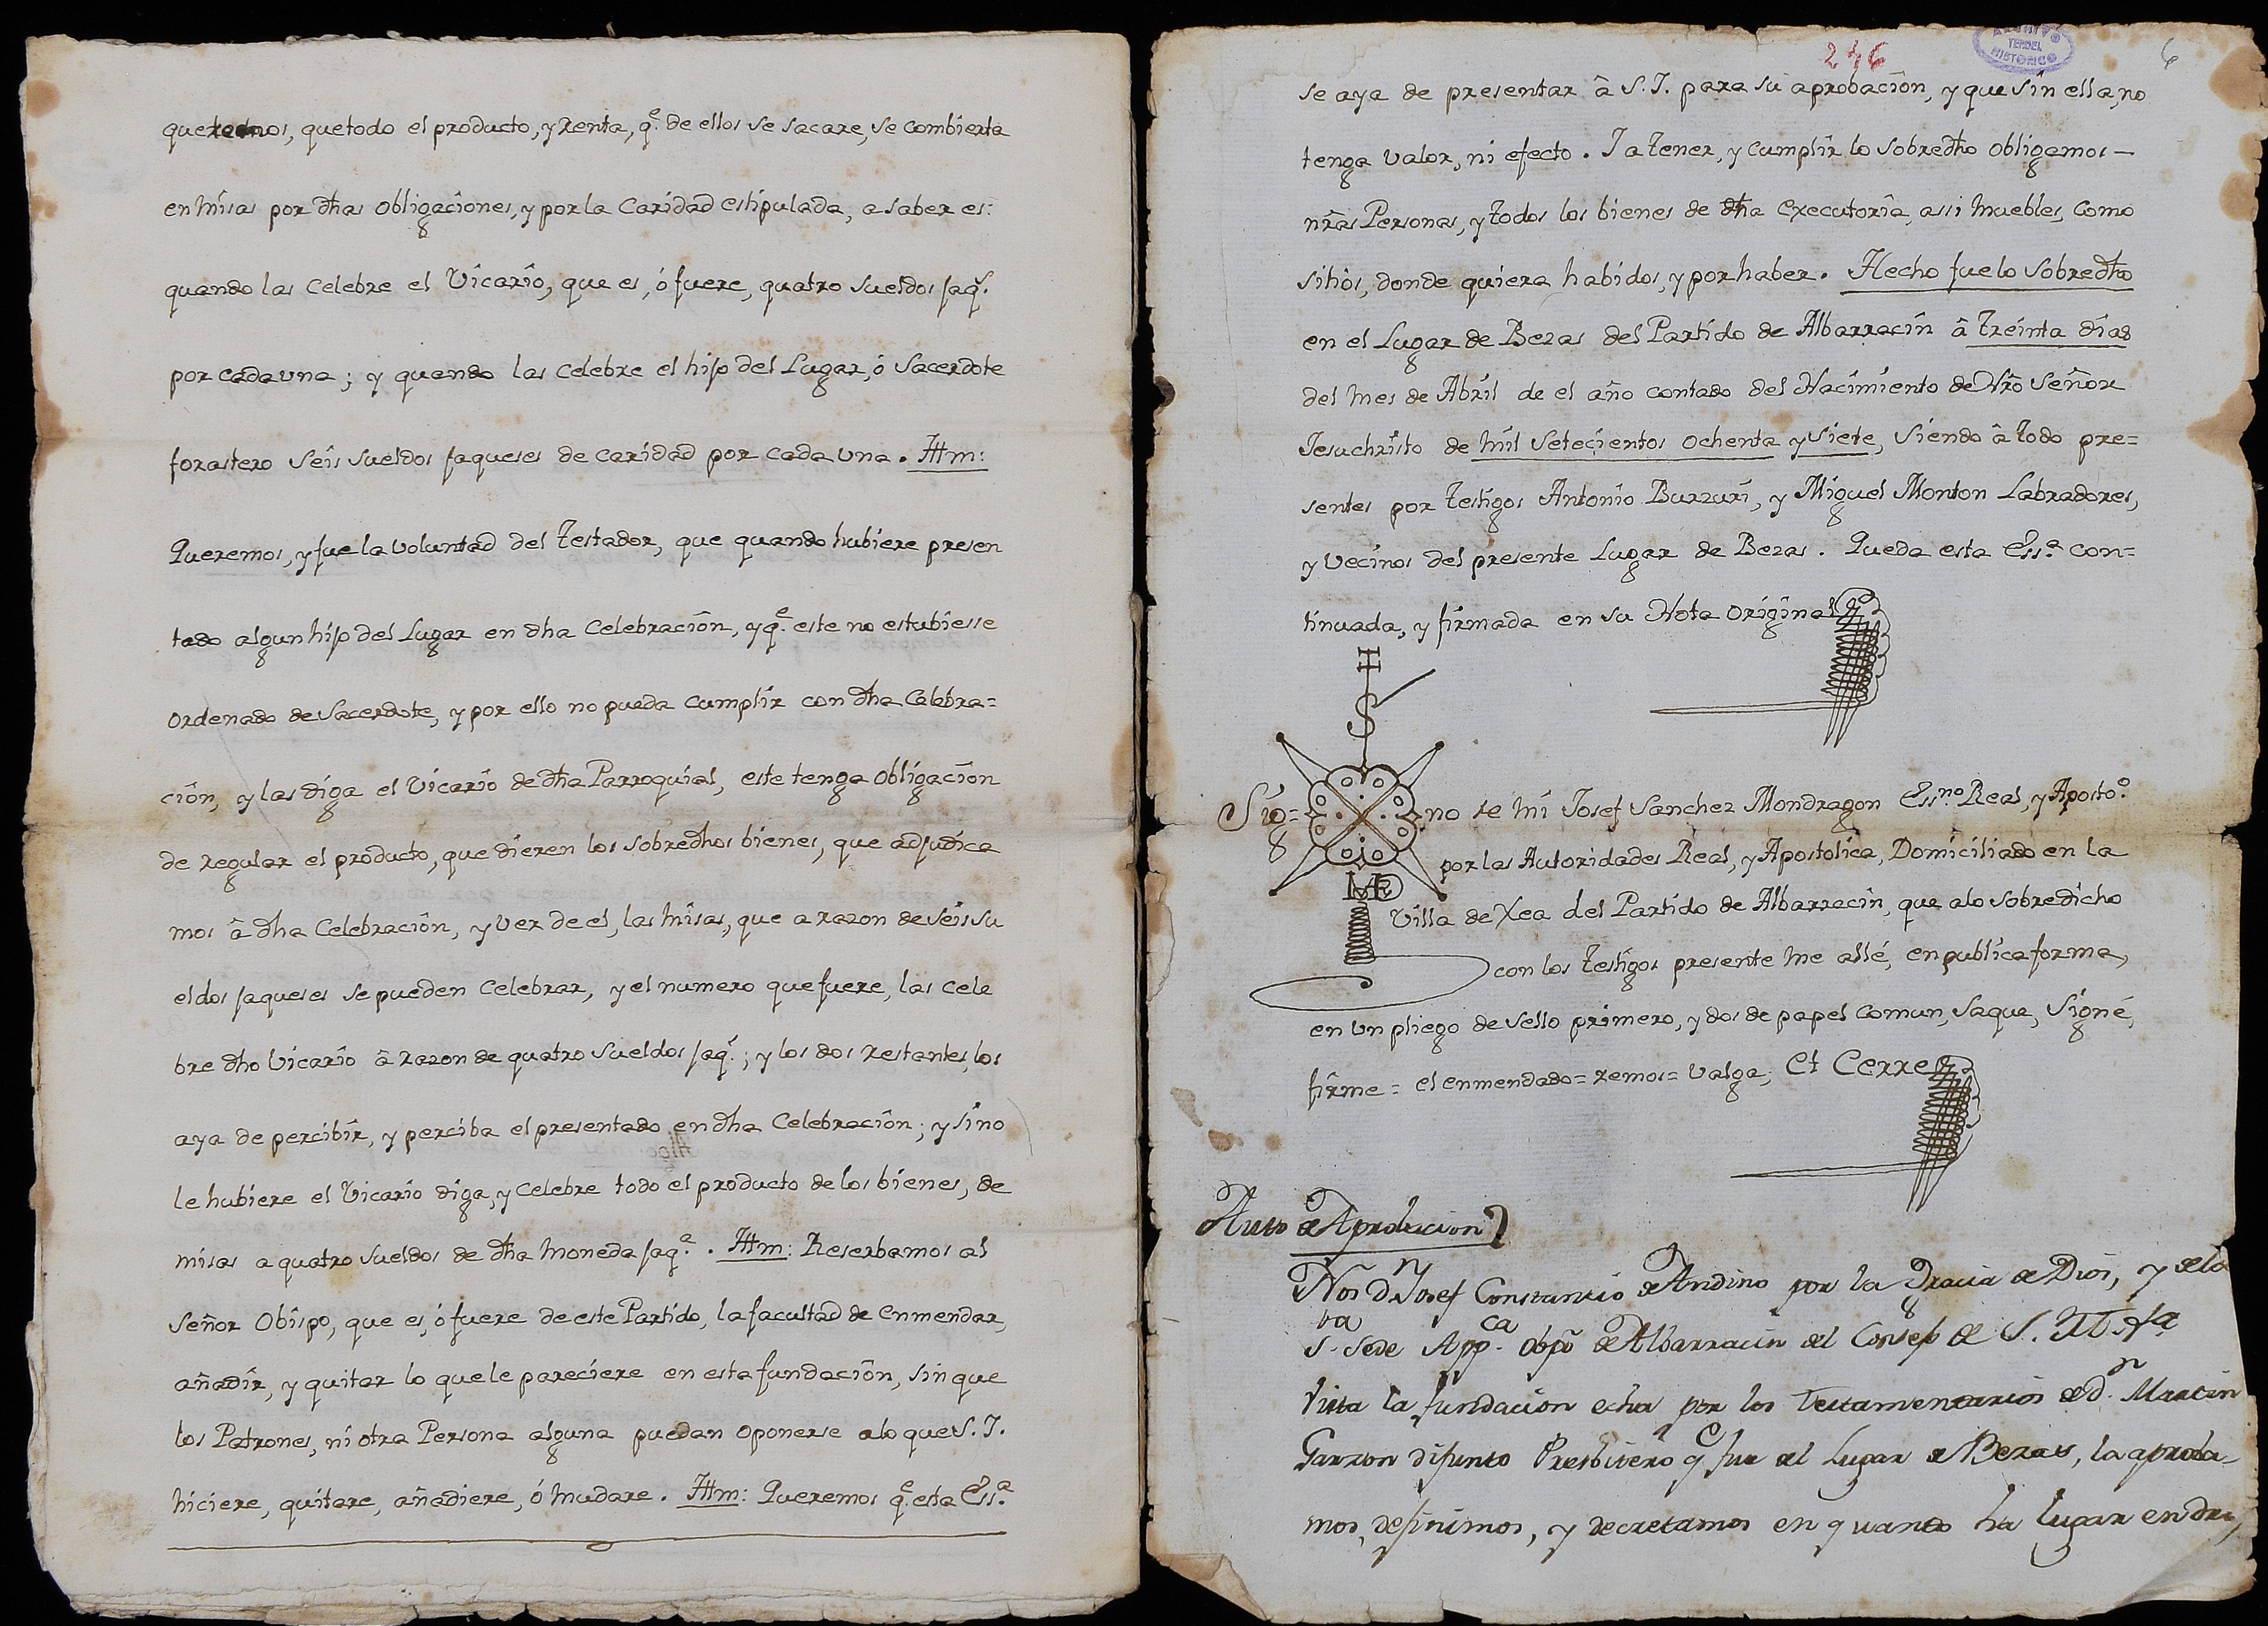 queremos, que todo el producto, y renta, q.e de ellos se sacare, se combierta
en misas por dhas obligaciones, y por la caridad estipulada, a saber es:
quando las celebre el Vicario, que es, ó fuere, quatro sueldos jaq.s
por cada una; y quando las celebre el hijo del Lugar, ó Sacerdote
forastero seis sueldos jaqueses de caridad por cada una. Ittm:
Queremos, y fue la voluntad del Testador, que quando hubiere presen
tado algun hijo del Lugar en dha Celebracion, y q.e este no estubiesse
ordenado de Sacerdote, y por ello no pueda cumplir con dha Celebra=
cion, y las diga el Vicario de dha Parroquial, este tenga obligacion
de regular el producto, que dieren los sobredhos bienes, que adjudica
mos â dha Celebracion, y ver de el, las misas, que a razon de seis su
eldos jaqueses se pueden celebrar, y el numero que fuere, las cele
bre dho Vicario â razon de quatro sueldos jaq.s; y los dos restantes, los
aya de percibir, y perciba el presentado en dha Celebracion; y sino
le hubiere el Vicario diga, y celebre todo el producto de los bienes, de
misas a quatro sueldos de dha moneda jaq.a. Ittm: Reserbamos al
Señor Obispo, que es, ó fuere de este Partido, la facultad de enmendar,
añadir, y quitar lo que le pareciere en esta fundacion, sin que
los Patrones, ni otra Persona alguna puedan oponerse alo que S. I.
hiciere, quitare, añadiere, ó mudare. Ittm: Queremos q.e esta Ess.a
246
ARCHIVO
TERUEL
HISTORICO
6
se aya de presentar â S. I. para su aprobacion, y que sin ella, no
tenga valor, ni efecto. I a tener, y cumplir lo sobredho obligamos —
nras Personas, y todos los bienes de dha executoria, assi muebles, como
sitios, donde quiera habidos, y por haber. Hecho fue lo sobredho
en el Lugar de Bezas del Partido de Albarracin â treinta dias
del mes de Abril de el año contado del Nacimiento de Nro Señor
Jesuchristo de mil setecientos ochenta y siete, siendo â todo pre=
sentes por testigos Antonio Burzuri, y Miguel Monton Labradores,
y vecinos del presente Lugar de Bezas. Queda esta Ess.a con=
tinuada, y firmada en su Nota original
Sig= no de mi Josef Sanchez Mondragon Ess.no Real, y Aposto.o
por las Autoridades Real, y Apostolica, Domiciliado en la
Villa de Xea del Partido de Albarracin, que alo sobredicho
con los testigos presente me allé, en publica forma,
en un pliego de sello primero, y dos de papel comun, saque, signé,
firme = el enmendado = remos = valga, Et Cerre
Auto de Aprobacion
Nos D.n Josef Constancio de Andino por la Gracia de Dios, y de la
S.ta Sede App.ca Obpo de Albarracin del Consejo de S. M. &a
Vista la fundacion echa por los Testamentarios de d.n Martin
Garzon difunto Presbitero q.e fue del Lugar de Bezas, la aproba=
mos, definimos, y decretamos en quanto ha lugar en dro,